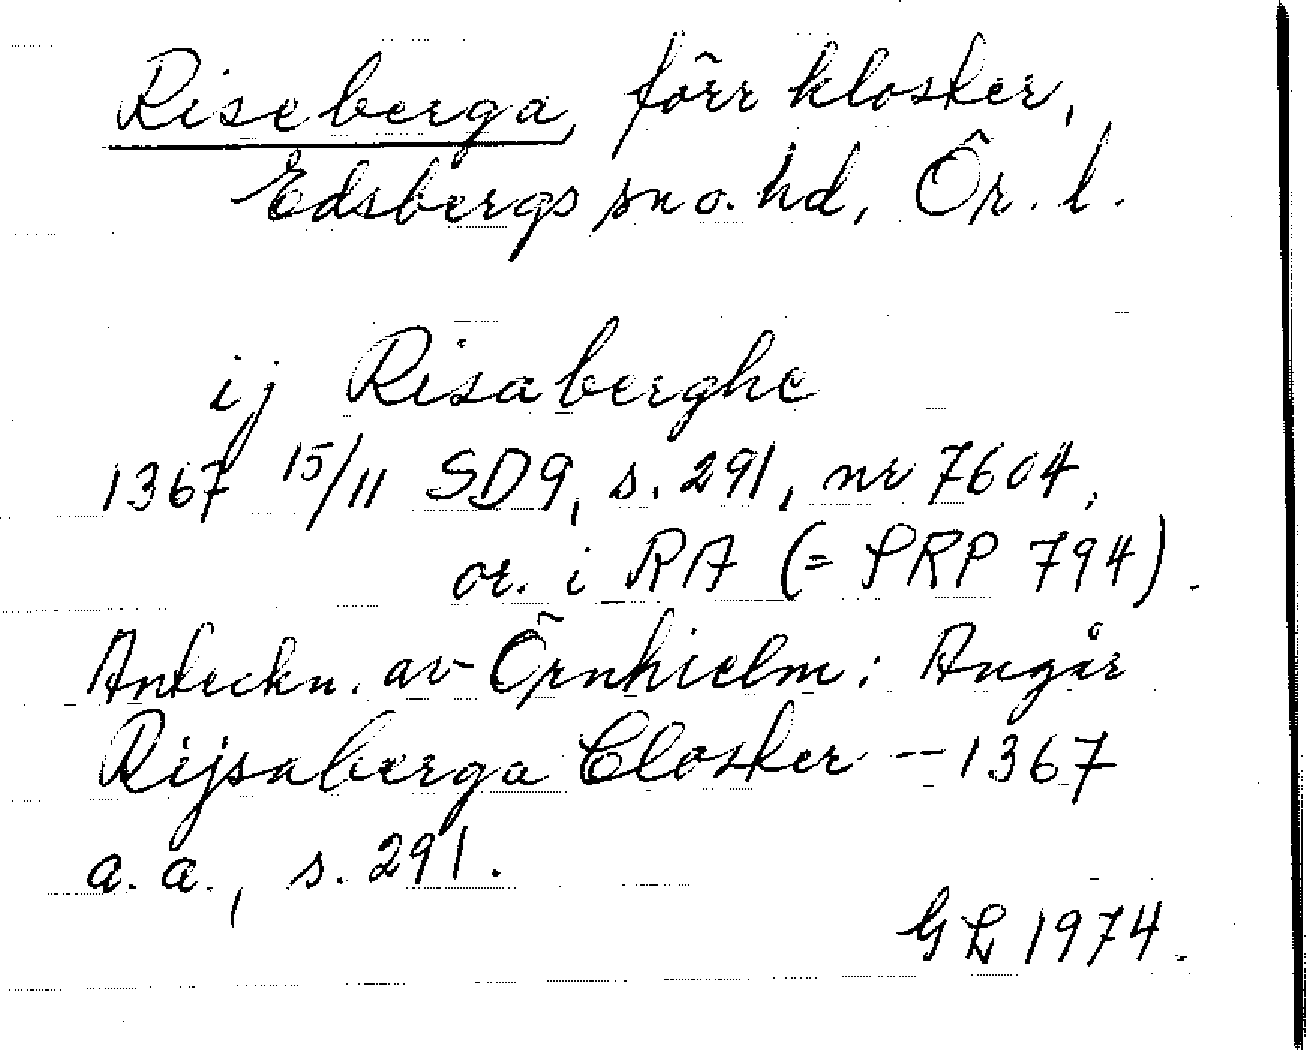 Riseberga, förr kloster,
Edsbergs sn o. hd, Ör. l.
ij Risaberghe
1367 15/11 SD9, s. 291, nr 7604,
or. i RA (= SRP 794).
Anteckn. av Örnhielm: Angår
Rijsaberga Closter -- 1367
a. a., s. 291.
GL 1974.